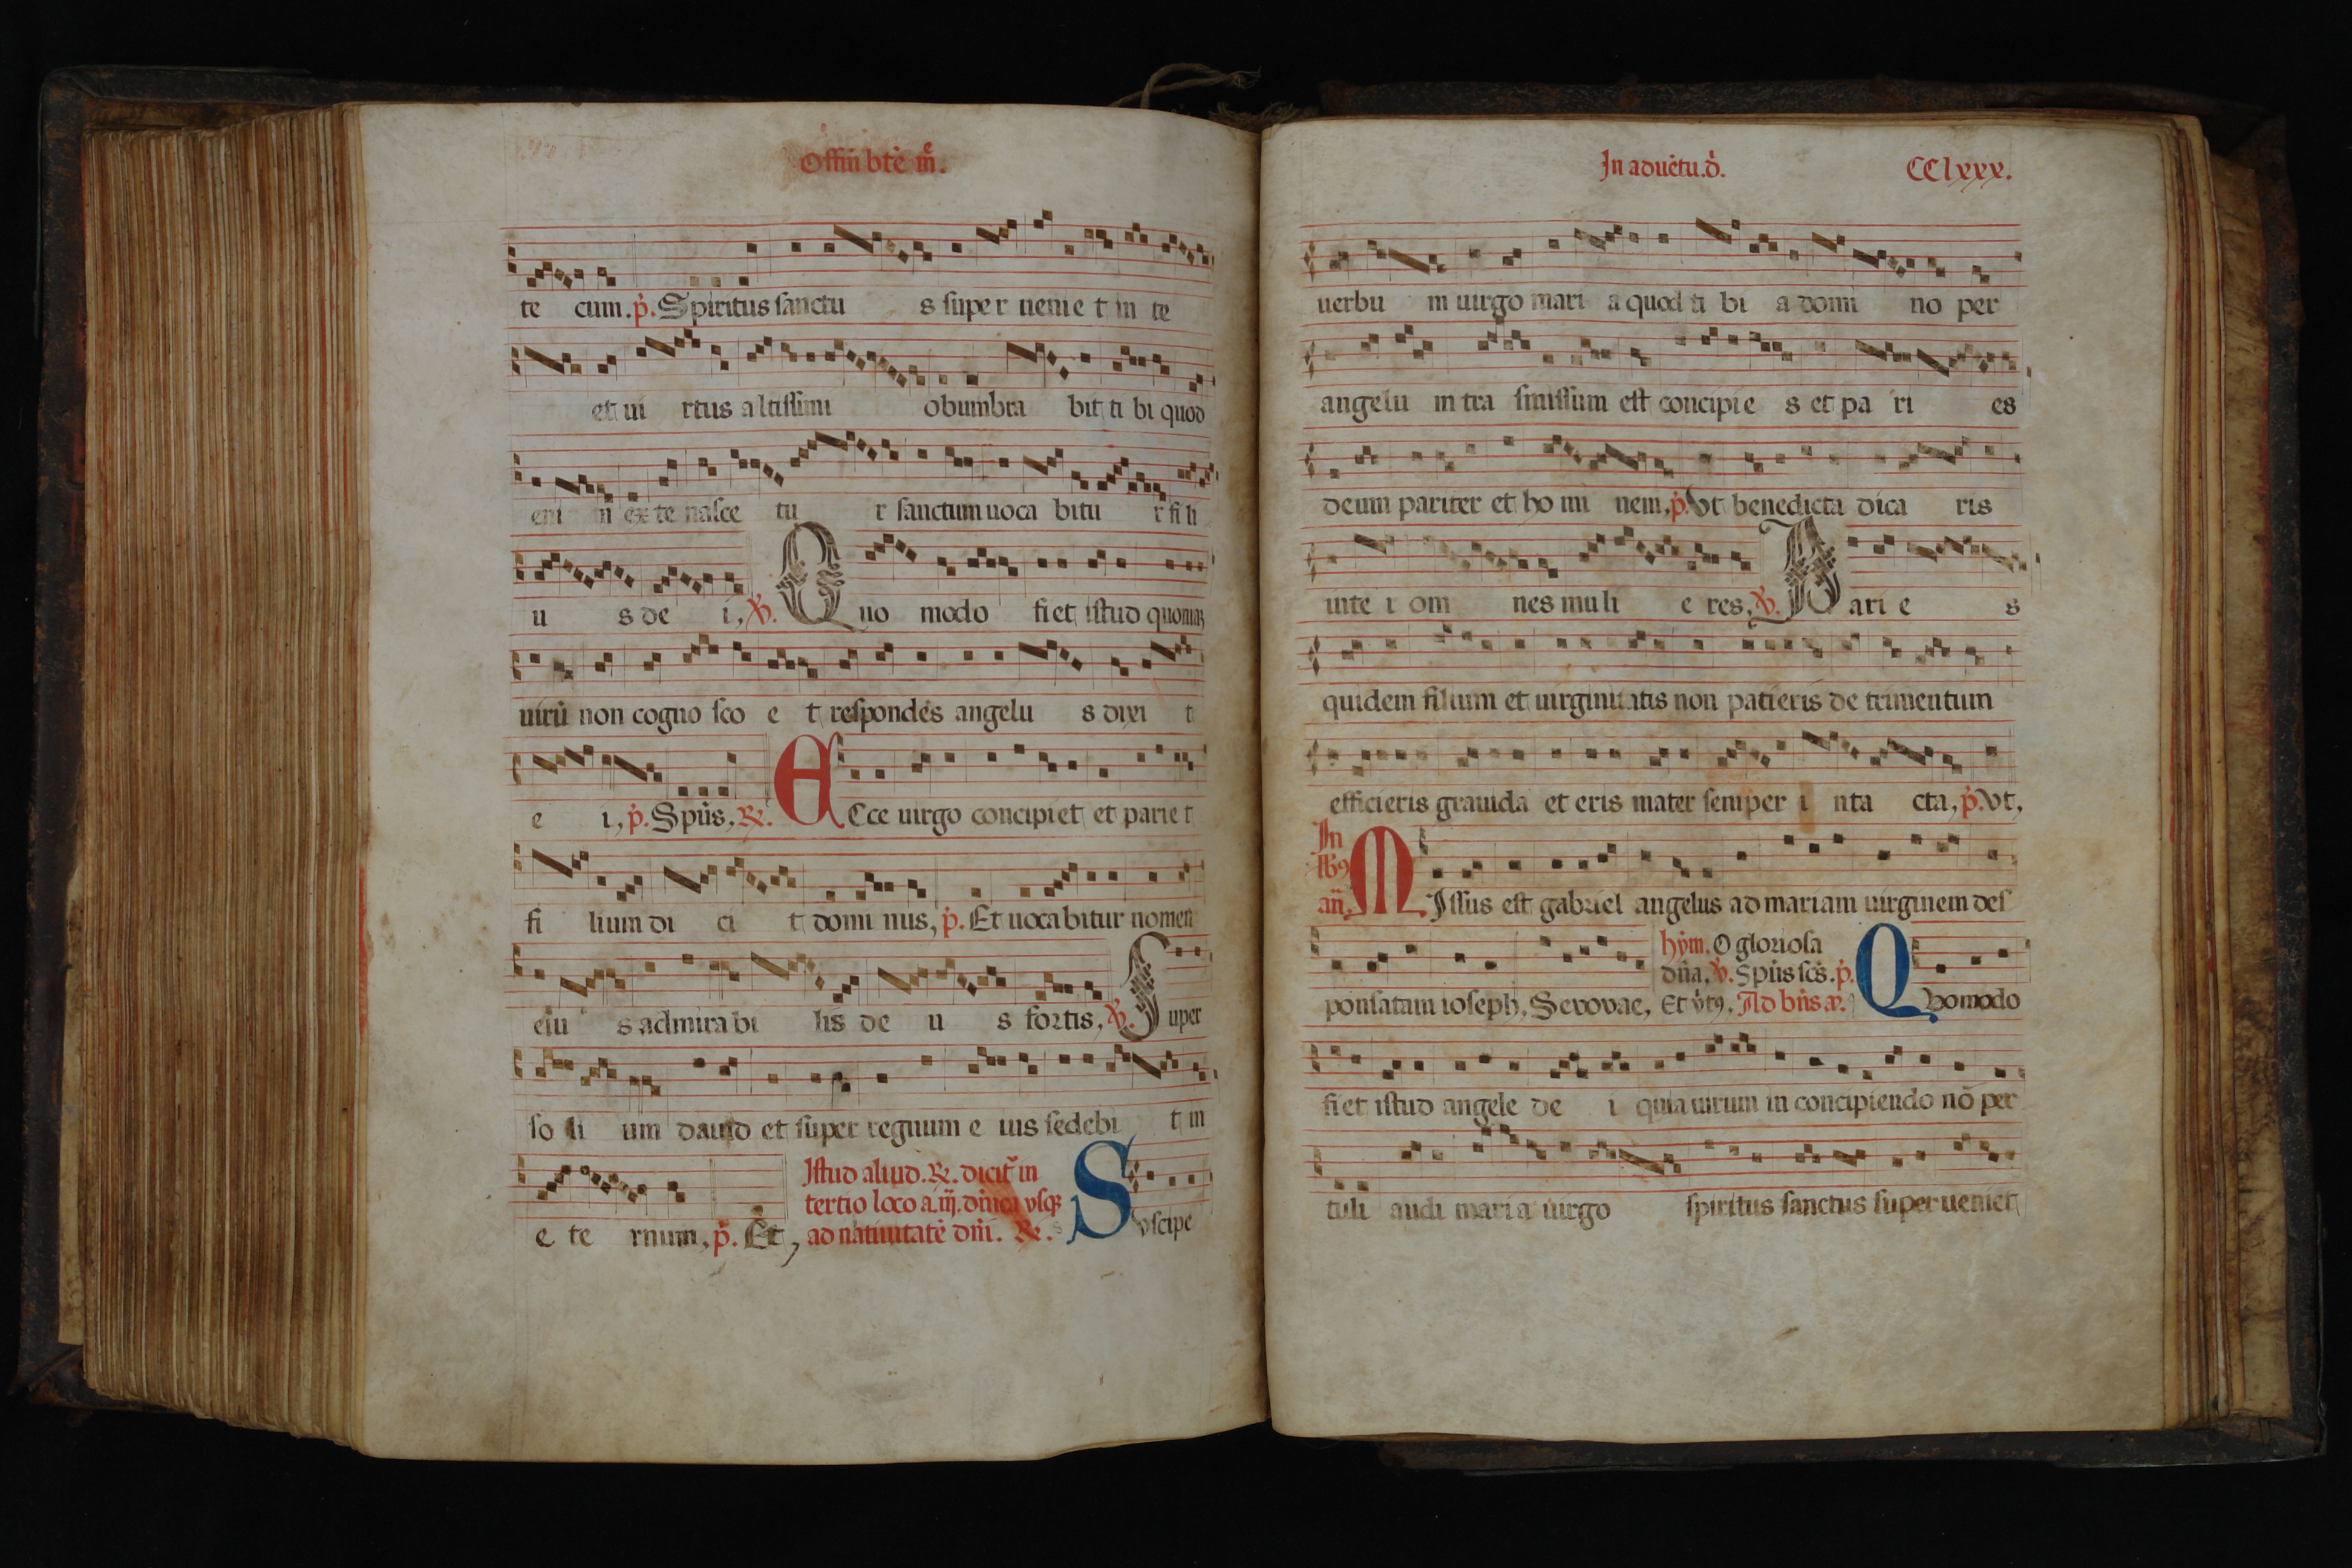 Offiũ bt̃e m̃e.
te cum. p̃. Spiritus sanctu s super ueniet in te
et ui rtus altissimi obumbra bit ti bi quod
eni m ex te nasce tu r sanctum uoca bitu r fi li
u s de i, V. Quo modo fiet istud quoniam
uirũ non cogno sco e t respondẽs angelu s dixi t
e i, p̃. Spũs, R. Ecce uirgo concipiet et parie t
fi lium di ci t domi nus, p̃. Et uocabitur nomen
eiu s admirabi lis de u s fortis, V. Super
so li um dauid et super regnum e ius sedebi t in
e te rnum, p̃. Et,
Istud aliud. R. dicit̃ in
tertio loco a .iij. dñica usq̃
ad natiuitatẽ dñi. R. Suscipe
In aduẽtu. d̃. CClxxx.
uerbu m uirgo mari a quod ti bi a domi no per
angelu m tra smissum est concipie s et pa ri es
deum pariter et ho mi nem, p̃. Ut benedicta dica ris
inte r om nes muli e res, V. Pari e s
quidem filium et uirginitatis non patieris de trimentum
efficieris grauida et eris mater semper i nta cta, p̃. Ut,
In
lb9
añ. Missus est gabriel angelus ad mariam uirginem des
ponsatam ioseph, Seuouae,
hỹm. O gloriosa
dña, V. Spũs scs̃. p̃.
Et ũt9. Ad bñs añ. Quomodo
fiet istud angele de i quia uirum in concipiendo nõ per
tuli audi maria uirgo spiritus sanctus superueniet